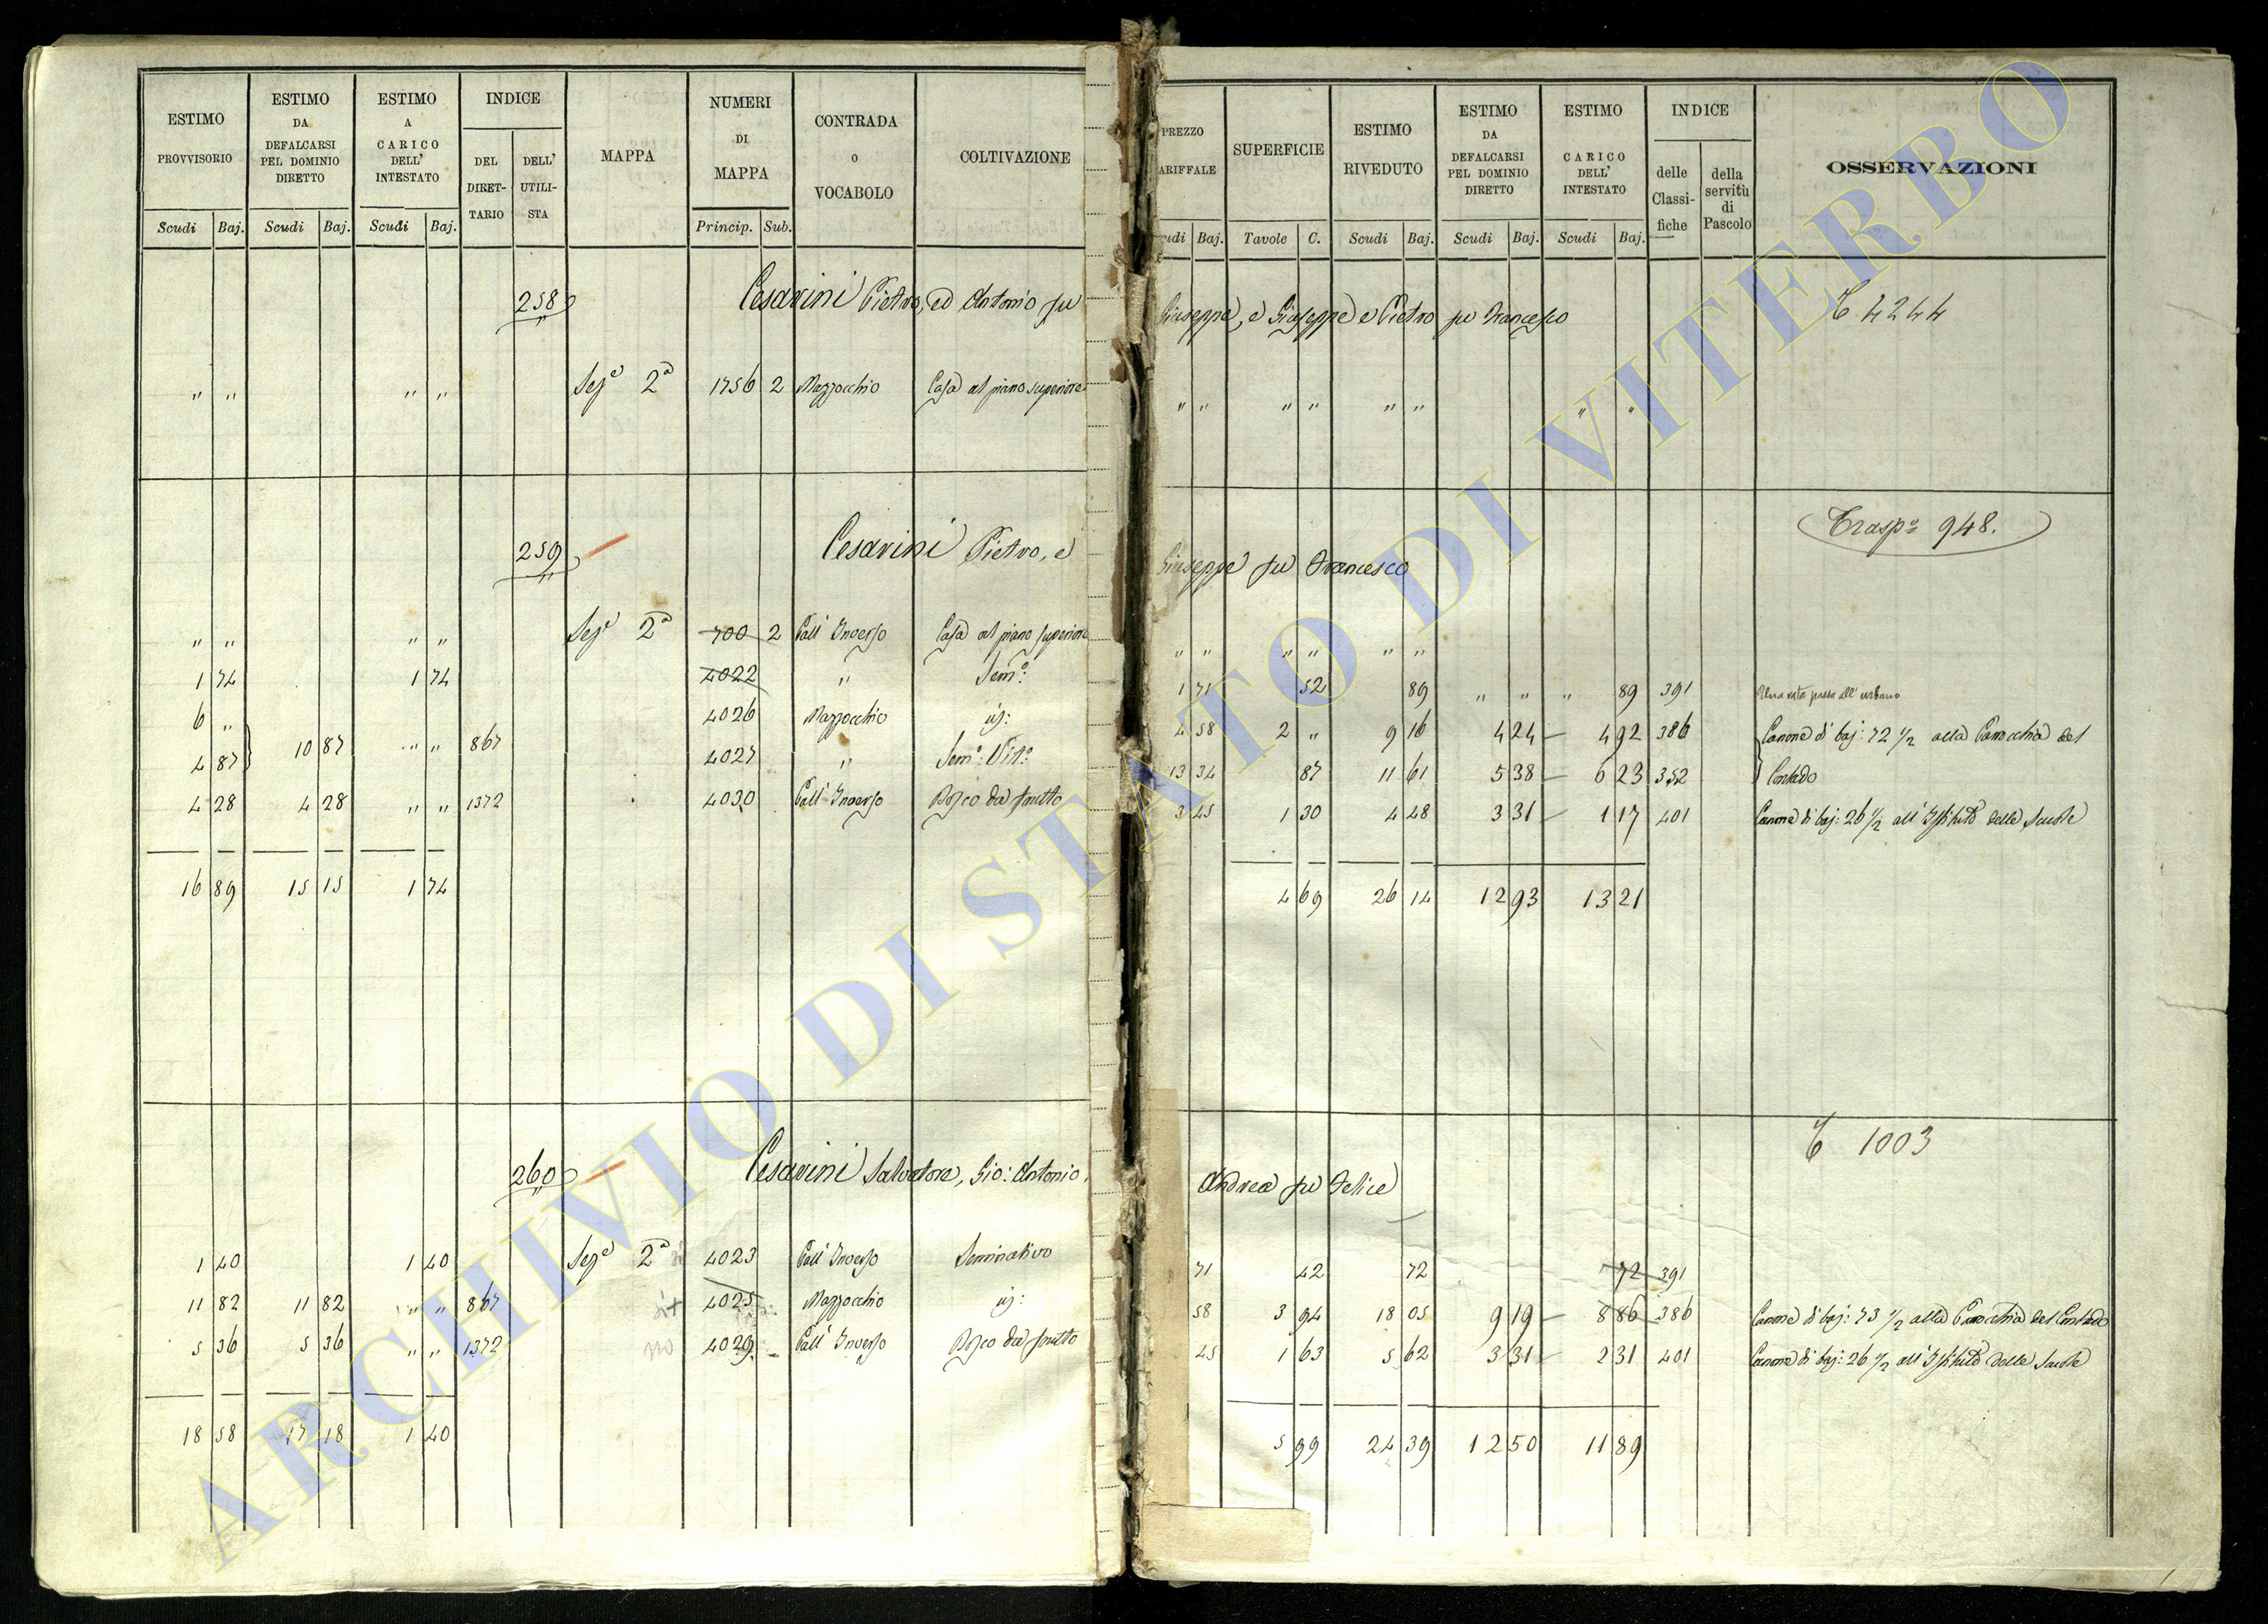 ESTIMO PROVVISORIO Scudi Baj. | ESTIMO DA DEFALCARSI PEL DOMINIO DIRETTO Scudi Baj. | ESTIMO A CARICO DELL' INTESTATO Scudi Baj. | INDICE DEL DIRET-TARIO DELL' UTILI-STA | MAPPA | NUMERI DI MAPPA Princip. Sub. | CONTRADA O VOCABOLO | COLTIVAZIONE | PREZZO ARIFFALE udi Baj. | SUPERFICIE Tavole C. | ESTIMO RIVEDUTO Scudi Baj. | ESTIMO DA DEFALCARSI PEL DOMINIO DIRETTO Scudi Baj. | ESTIMO CARICO DELL' INTESTATO Scudi Baj. | INDICE delle Classi-fiche della servitù di Pascolo | OSSERVAZIONI
258 Cesarini Pietro, ed Antonio fu Giuseppe, e Giuseppe e Pietro fu Francesco 4244
" " " " Sez.e 2a 1756 2 Mazzocchio Casa al piano superiore " " " " " " " "
259 Cesarini Pietro, e Giuseppe fu Francesco Traspo 948.
" " " " Sez.e 2a 700 2 Casa al piano superiore " " " " " "
1 74 1 74 4022 " Semo: 1 71 52 89 " " " 89 391 Una rata passa all' urbano
6 " 4026 Mazzocchio 4 58 2 " 9 16 4 24 4 92 386 Canone di baj: 72 1/2 alla Parrocchia del
4 87 10 87 " " 867 4027 " Semo: Vito 13 34 87 11 61 5 38 6 23 352 Contado
4 28 4 28 " " 1372 4030 Bosco da frutto 3 45 1 30 4 48 3 31 1 17 401 Canone di baj: 26 1/2 all' Istituto delle Scuole
16 89 15 15 1 74 4 69 26 14 12 93 13 21
260 Cesarini Salvatore, Gio: Antonio, Andrea fu Felice 1003
1 40 1 40 Sez.e 2a 4023 Seminativo 71 42 72 72 391
11 82 11 82 " " 867 4025 Mazzocchio 58 3 94 18 05 9 19 8 86 386 Canone di baj: 73 1/2 alla Parrocchia del Contado
5 36 5 36 " " 1372 no 4029 Bosco da frutto 45 1 63 5 62 3 31 2 31 401 Canone di baj: 26 1/2 all' Istituto delle Scuole
18 58 17 18 1 40 5 99 24 39 12 50 11 89
ARCHIVIO DI STATO DI VITERBO